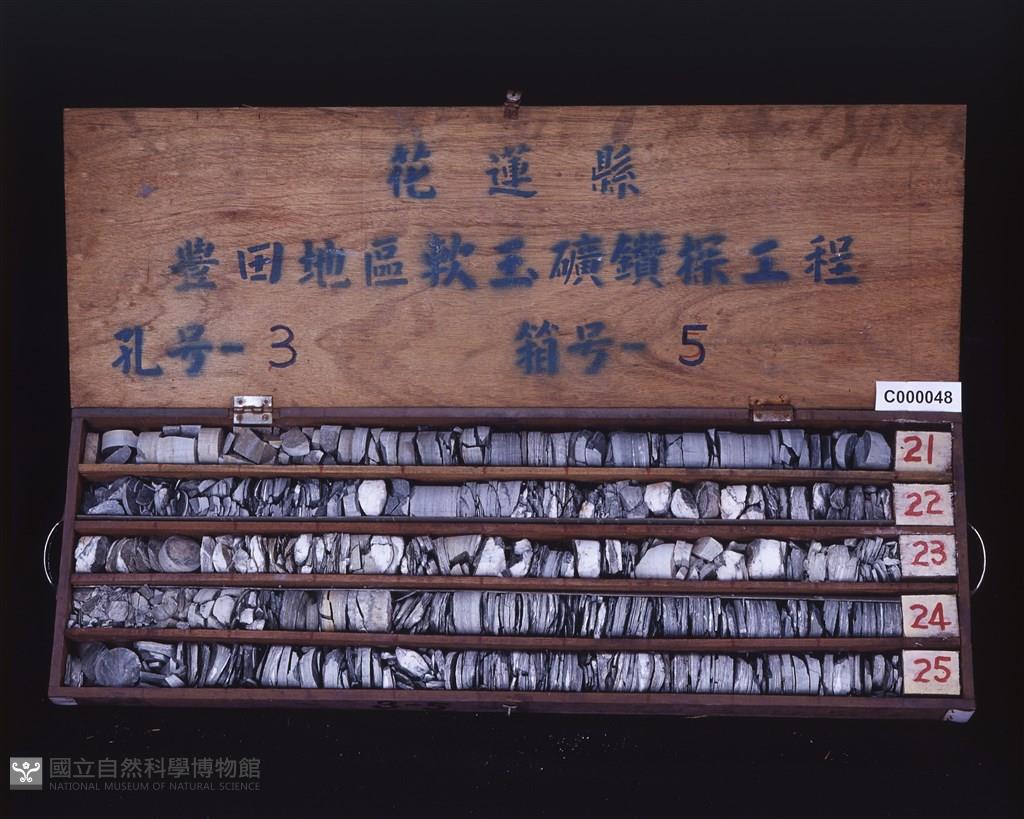 花蓮縣
豐田地區軟玉礦鑽探工程
孔号-3 箱号-5
C000048
21
22
23
24
25
國立自然科學博物館
NATIONAL MUSEUM OF NATURAL SCIENCE